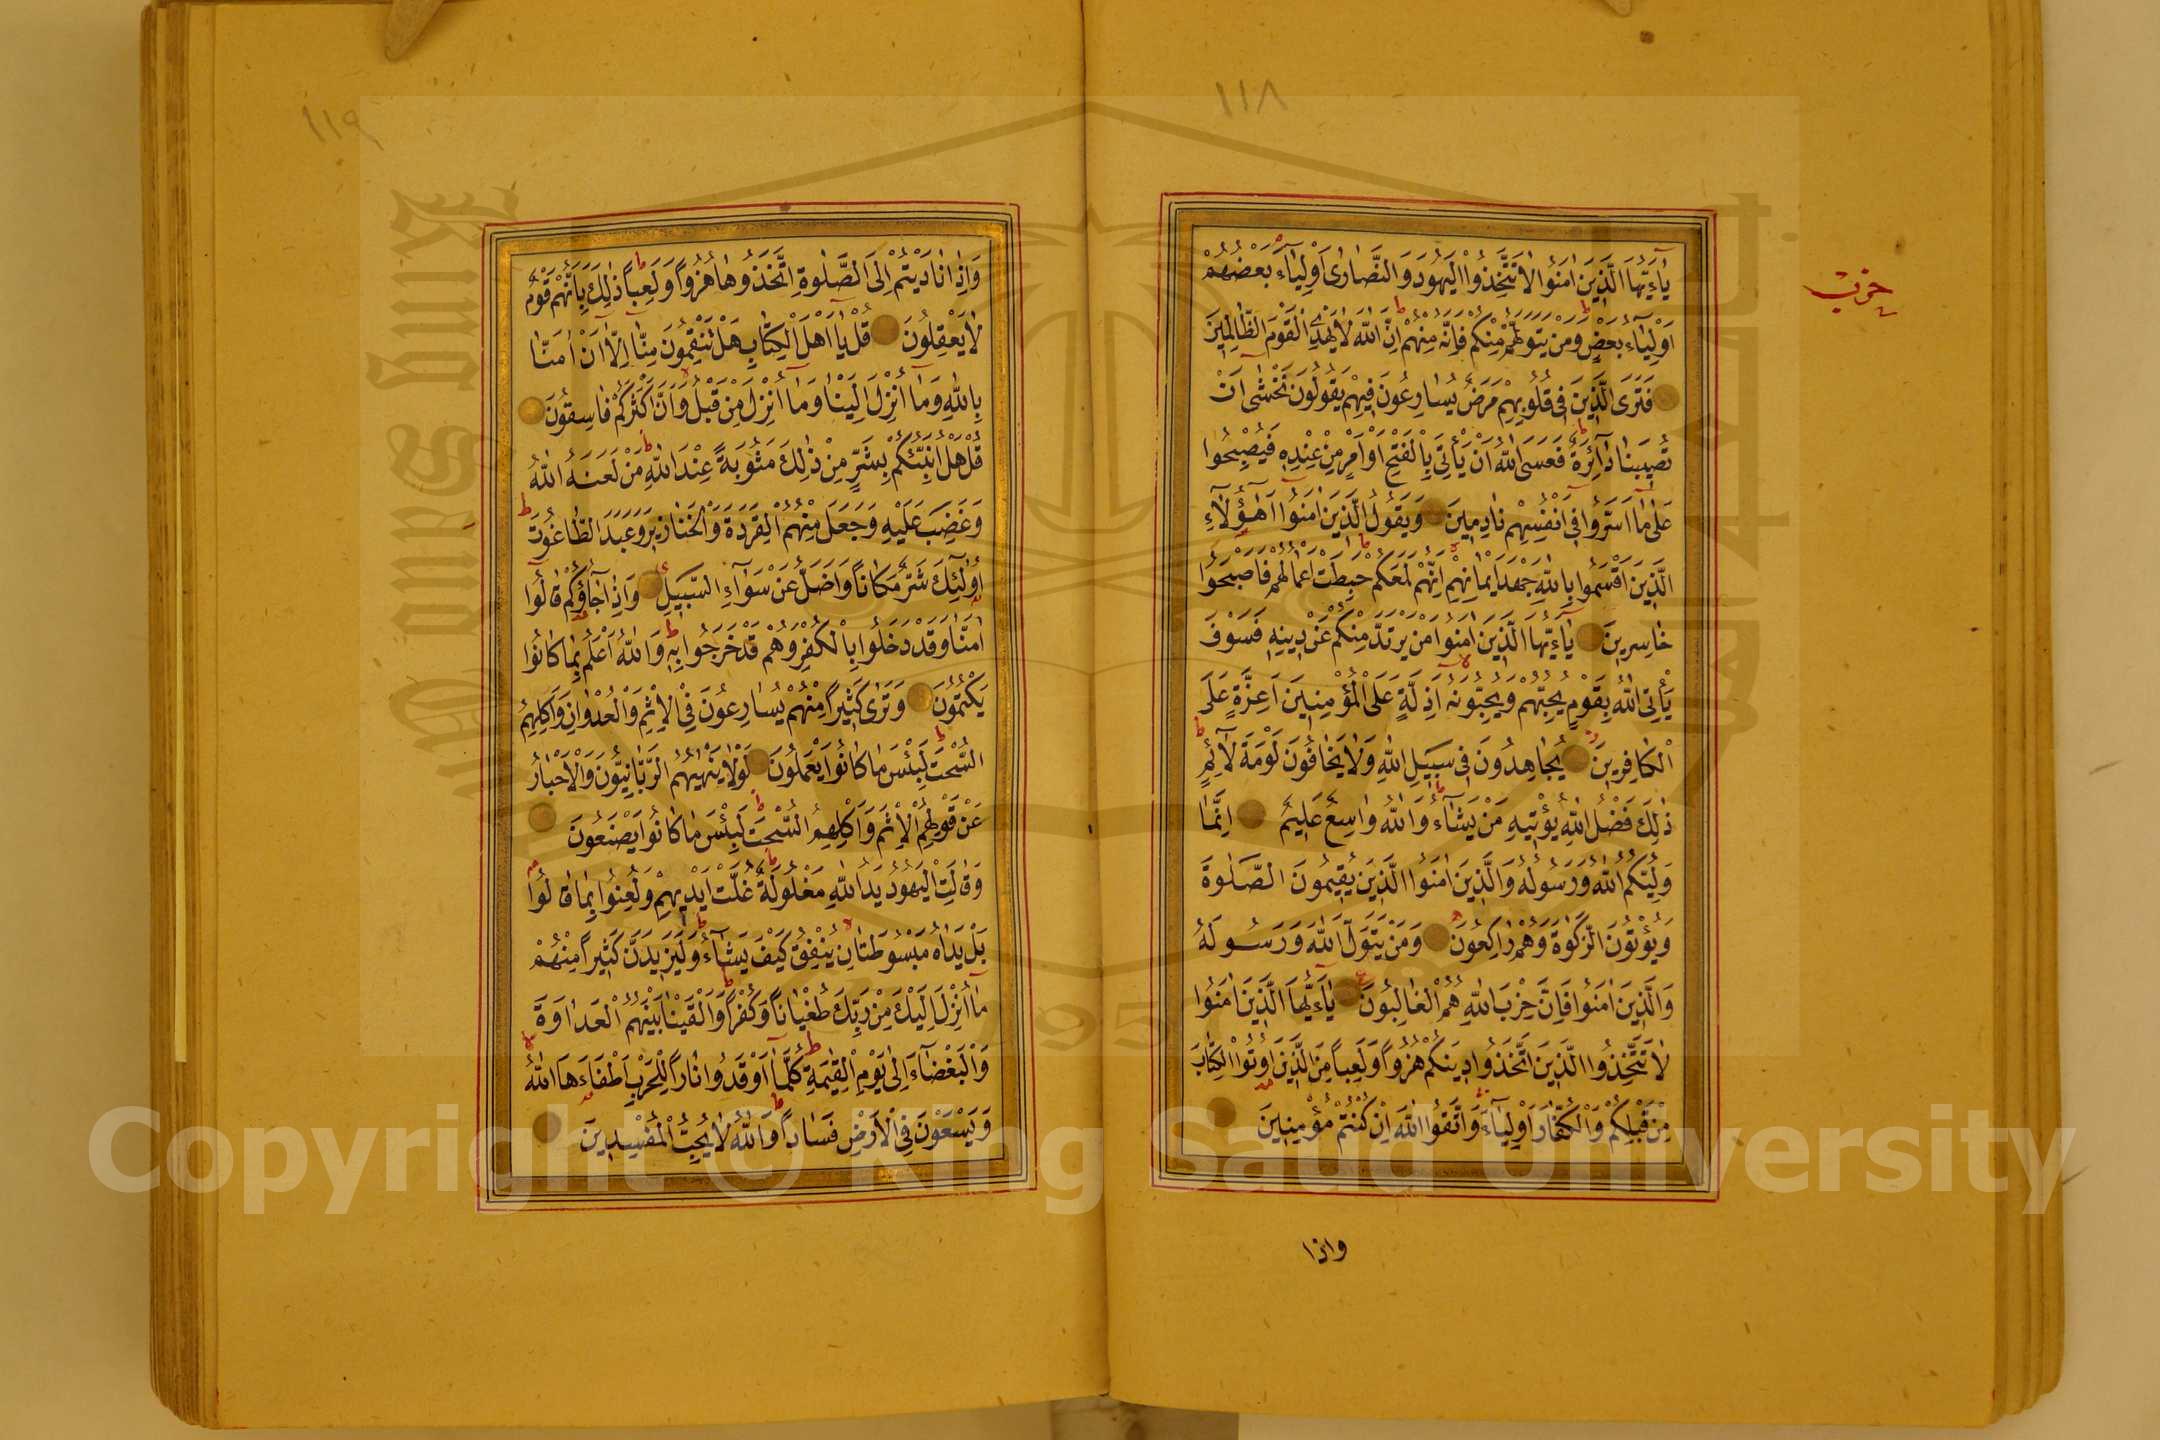 ١١٨
حزب
يَاءَيُّهَا الَّذِينَ اٰمَنُوا لَا تَتَّخِذُوا الْيَهُودَ وَالنَّصَارٰى اَوْلِيَاءَ بَعْضُهُمْ
اَوْلِيَاءُ بَعْضٍ وَمَنْ يَتَوَلَّهُمْ مِنْكُمْ فَاِنَّهُ مِنْهُمْ اِنَّ اللّٰهَ لَا يَهْدِي الْقَوْمَ الظَّالِمِينَ
فَتَرَى الَّذِينَ فِي قُلُوبِهِمْ مَرَضٌ يُسَارِعُونَ فِيهِمْ يَقُولُونَ نَخْشٰى اَنْ
تُصِيبَنَا دَآئِرَةٌ فَعَسَى اللّٰهُ اَنْ يَأْتِيَ بِالْفَتْحِ اَوْ اَمْرٍ مِنْ عِنْدِهِ فَيُصْبِحُوا
عَلٰى مَا اَسَرُّوا فِي اَنْفُسِهِمْ نَادِمِينَ وَيَقُولُ الَّذِينَ اٰمَنُوا اَهٰؤُلَاءِ
الَّذِينَ اَقْسَمُوا بِاللّٰهِ جَهْدَ اَيْمَانِهِمْ اِنَّهُمْ لَمَعَكُمْ حَبِطَتْ اَعْمَالُهُمْ فَاَصْبَحُوا
خَاسِرِينَ يَاءَيُّهَا الَّذِينَ اٰمَنُوا مَنْ يَرْتَدَّ مِنْكُمْ عَنْ دِينِهِ فَسَوْفَ
يَأْتِي اللّٰهُ بِقَوْمٍ يُحِبُّهُمْ وَيُحِبُّونَهُ اَذِلَّةٍ عَلَى الْمُؤْمِنِينَ اَعِزَّةٍ عَلَى
الْكَافِرِينَ يُجَاهِدُونَ فِي سَبِيلِ اللّٰهِ وَلَا يَخَافُونَ لَوْمَةَ لَآئِمٍ
ذٰلِكَ فَضْلُ اللّٰهِ يُؤْتِيهِ مَنْ يَشَآءُ وَاللّٰهُ وَاسِعٌ عَلِيمٌ اِنَّمَا
وَلِيُّكُمُ اللّٰهُ وَرَسُولُهُ وَالَّذِينَ اٰمَنُوا الَّذِينَ يُقِيمُونَ الصَّلٰوةَ
وَيُؤْتُونَ الزَّكٰوةَ وَهُمْ رَاكِعُونَ وَمَنْ يَتَوَلَّ اللّٰهَ وَرَسُولَهُ
وَالَّذِينَ اٰمَنُوا فَاِنَّ حِزْبَ اللّٰهِ هُمُ الْغَالِبُونَ يَاءَيُّهَا الَّذِينَ اٰمَنُوا
لَا تَتَّخِذُوا الَّذِينَ اتَّخَذُوا دِينَكُمْ هُزُوًا وَلَعِبًا مِنَ الَّذِينَ اُوتُوا الْكِتَابَ
مِنْ قَبْلِكُمْ وَالْكُفَّارَ اَوْلِيَآءَ وَاتَّقُوا اللّٰهَ اِنْ كُنْتُمْ مُؤْمِنِينَ
واذا
١١٩
وَاِذَا نَادَيْتُمْ اِلَى الصَّلٰوةِ اتَّخَذُوهَا هُزُوًا وَلَعِبًا ذٰلِكَ بِاَنَّهُمْ قَوْمٌ
لَا يَعْقِلُونَ قُلْ يَا اَهْلَ الْكِتَابِ هَلْ تَنْقِمُونَ مِنَّا اِلَّا اَنْ اٰمَنَّا
بِاللّٰهِ وَمَا اُنْزِلَ اِلَيْنَا وَمَا اُنْزِلَ مِنْ قَبْلُ وَاَنَّ اَكْثَرَكُمْ فَاسِقُونَ
قُلْ هَلْ اُنَبِّئُكُمْ بِشَرٍّ مِنْ ذٰلِكَ مَثُوبَةً عِنْدَ اللّٰهِ مَنْ لَعَنَهُ اللّٰهُ
وَغَضِبَ عَلَيْهِ وَجَعَلَ مِنْهُمُ الْقِرَدَةَ وَالْخَنَازِيرَ وَعَبَدَ الطَّاغُوتَ
اُولٰئِكَ شَرٌّ مَكَانًا وَاَضَلُّ عَنْ سَوَآءِ السَّبِيلِ وَاِذَا جَآؤُكُمْ قَالُوا
اٰمَنَّا وَقَدْ دَخَلُوا بِالْكُفْرِ وَهُمْ قَدْ خَرَجُوا بِهِ وَاللّٰهُ اَعْلَمُ بِمَا كَانُوا
يَكْتُمُونَ وَتَرٰى كَثِيرًا مِنْهُمْ يُسَارِعُونَ فِي الْاِثْمِ وَالْعُدْوَانِ وَاَكْلِهِمُ
السُّحْتَ لَبِئْسَ مَا كَانُوا يَعْمَلُونَ لَوْلَا يَنْهٰيهُمُ الرَّبَّانِيُّونَ وَالْاَحْبَارُ
عَنْ قَوْلِهِمُ الْاِثْمَ وَاَكْلِهِمُ السُّحْتَ لَبِئْسَ مَا كَانُوا يَصْنَعُونَ
وَقَالَتِ الْيَهُودُ يَدُ اللّٰهِ مَغْلُولَةٌ غُلَّتْ اَيْدِيهِمْ وَلُعِنُوا بِمَا قَالُوا
بَلْ يَدَاهُ مَبْسُوطَتَانِ يُنْفِقُ كَيْفَ يَشَآءُ وَلَيَزِيدَنَّ كَثِيرًا مِنْهُمْ
مَا اُنْزِلَ اِلَيْكَ مِنْ رَبِّكَ طُغْيَانًا وَكُفْرًا وَاَلْقَيْنَا بَيْنَهُمُ الْعَدَاوَةَ
وَالْبَغْضَآءَ اِلٰى يَوْمِ الْقِيٰمَةِ كُلَّمَا اَوْقَدُوا نَارًا لِلْحَرْبِ اَطْفَاَهَا اللّٰهُ
وَيَسْعَوْنَ فِي الْاَرْضِ فَسَادًا وَاللّٰهُ لَا يُحِبُّ الْمُفْسِدِينَ
King Saud University
1957
Copyright © King Saud University